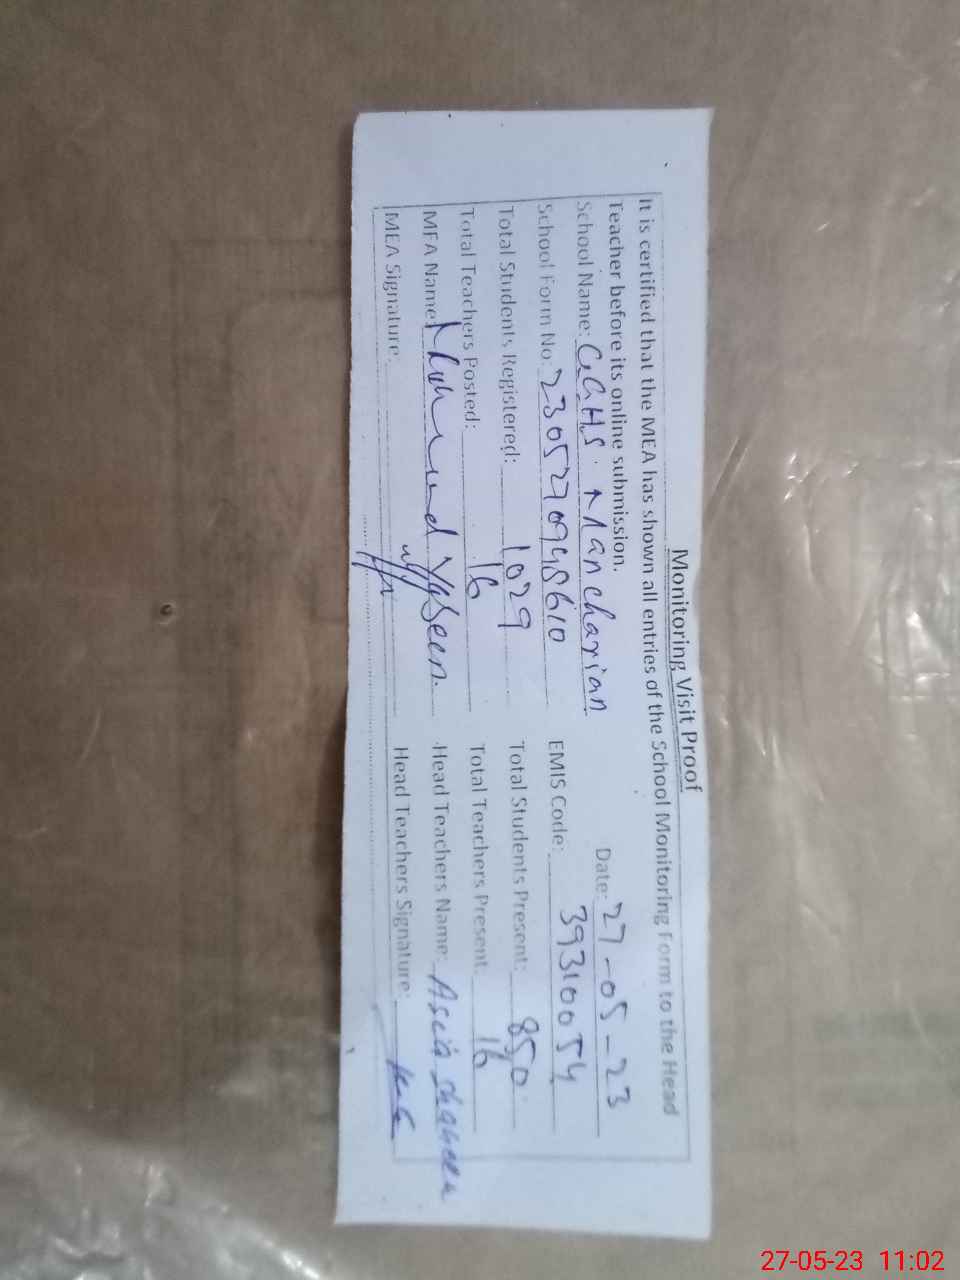 Monitoring Visit Proof
It is certified that the MEA has shown all entries of the School Monitoring Form to the Head
Teacher before its online submission.
Date: 27-05-23
School Name: GGHS. Mancharian
School Form No: 230527094S610 EMIS Code: 39310054
Total Students Registered: 1029 Total Students Present: 850
Total Teachers Posted: 16 Total Teachers Present: 16
MEA Name: Yaseen. Head Teachers Name: Asia
MEA Signature: Head Teachers Signature:
27-05-23 11:02